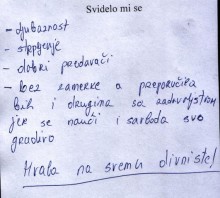 Svidelo mi se
- ljubaznost
- strpljenje
- dobri predavači
- bez zamerke a preporučila
bih i drugima sa zadovoljstvom
jer se nauči i savlada svo
gradivo
Hvala na svemu divni ste!